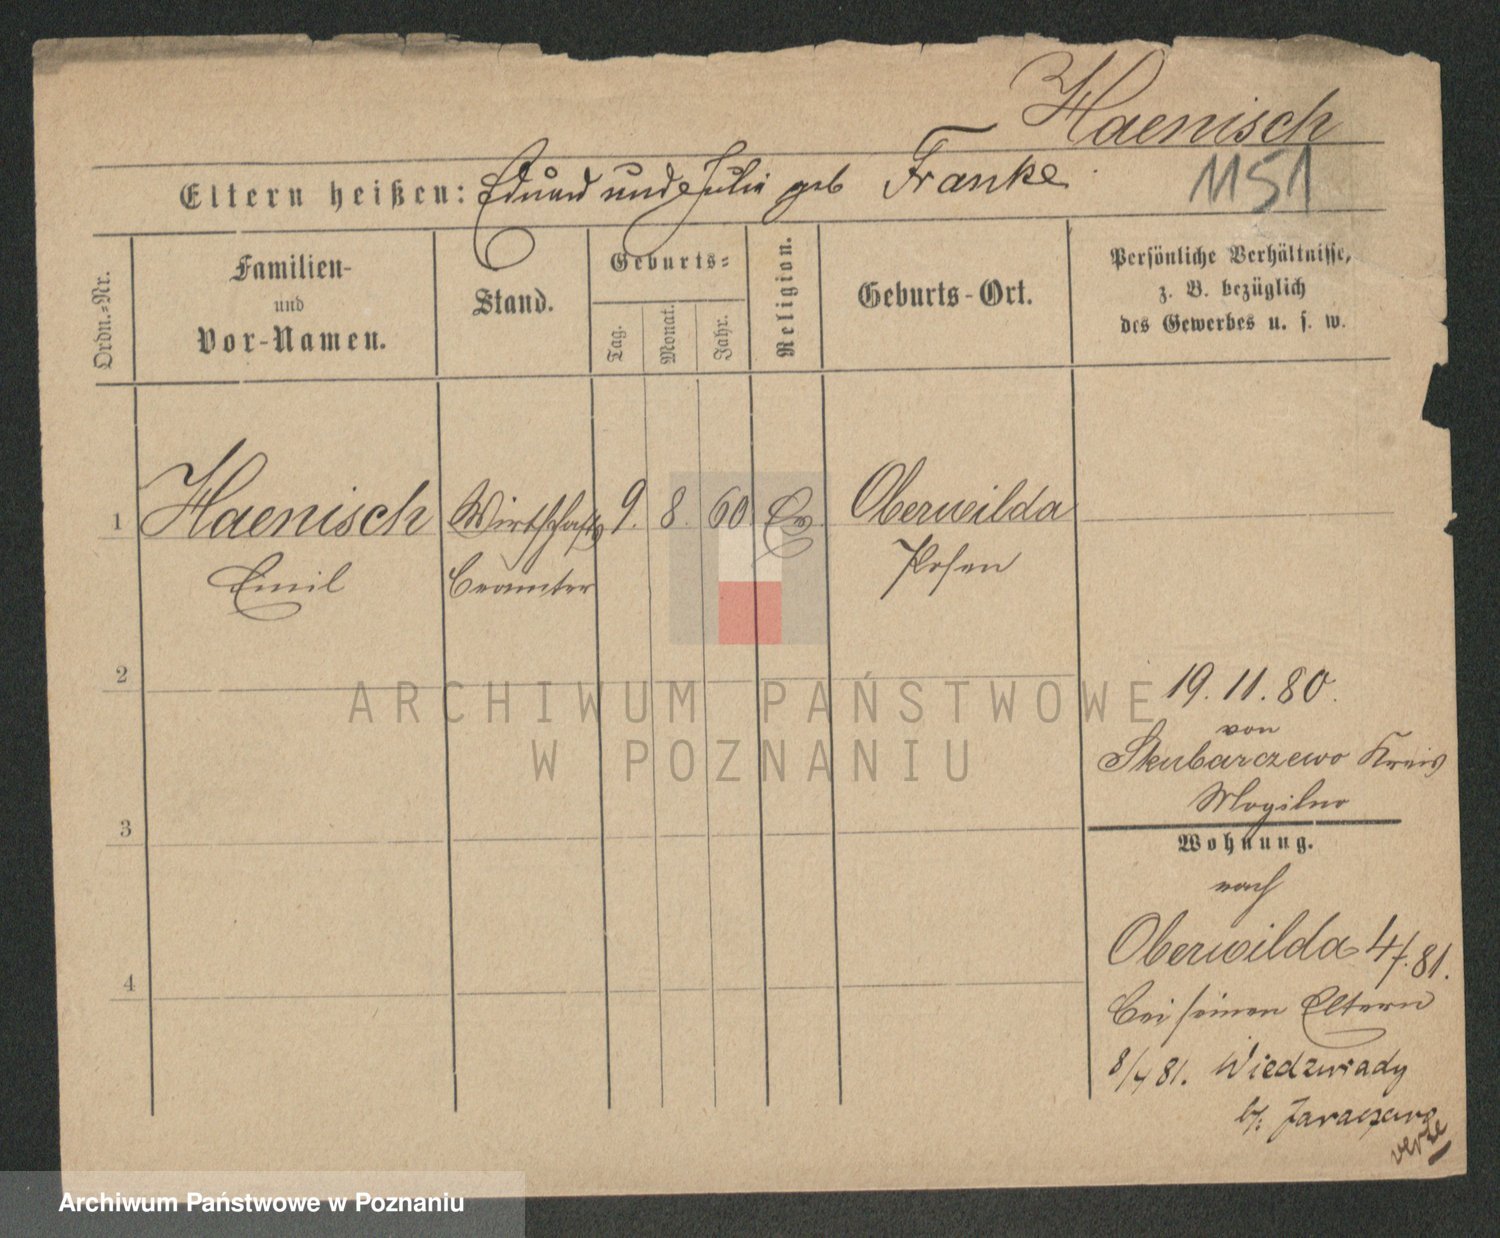 Haenisch
1151
Eltern heißen: Eduard und Julie geb Franke
Ordn.-Nr.
Familien-
und
Vor-Namen.
Stand.
Geburts-
Tag.
Monat.
Jahr.
Religion.
Geburts-Ort.
Persönliche Verhältnisse,
z. B. bezüglich
des Gewerbes u. s. w.
1 Haenisch Wirthschafts 9. 8. 60 Ev. Oberwilda
Emil Beamter Posen
2
19. 11. 80.
von
Skubarczewo Kreis
Mogilno
3
Wohnung.
nach
Oberwilda 4/. 81.
4
bei seinen Eltern
8/4 81. Wiedzwiady
b/. Jaraczewo
verte
ARCHIWUM PAŃSTWOWE
W POZNANIU
Archiwum Państwowe w Poznaniu